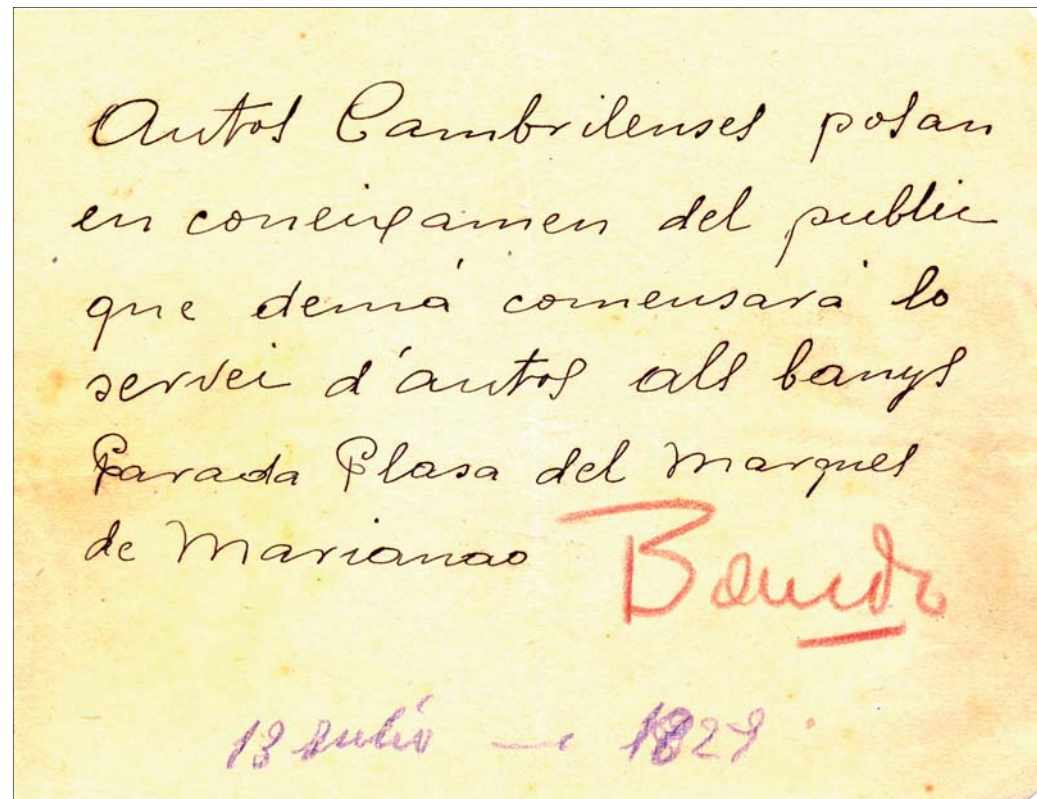 Autos Cambrilenses posan
en coneixamen del public
que demá comensará lo
servei d'autos als banys
Parada Plasa del Marques
de Marianao
Bando
13 Julio — 1929